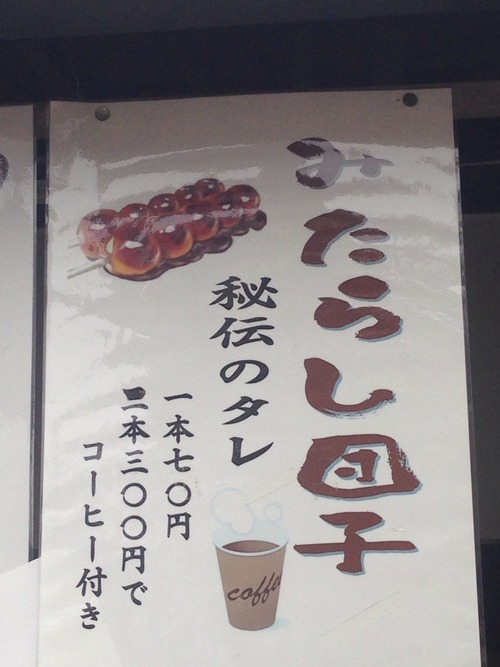 みたらし団子
秘伝のタレ
一本七〇円
二本三〇〇円で
コーヒー付き
coffee